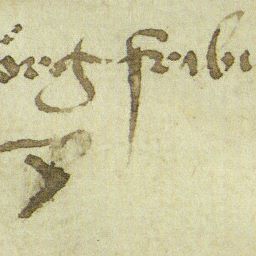 örg · frabi